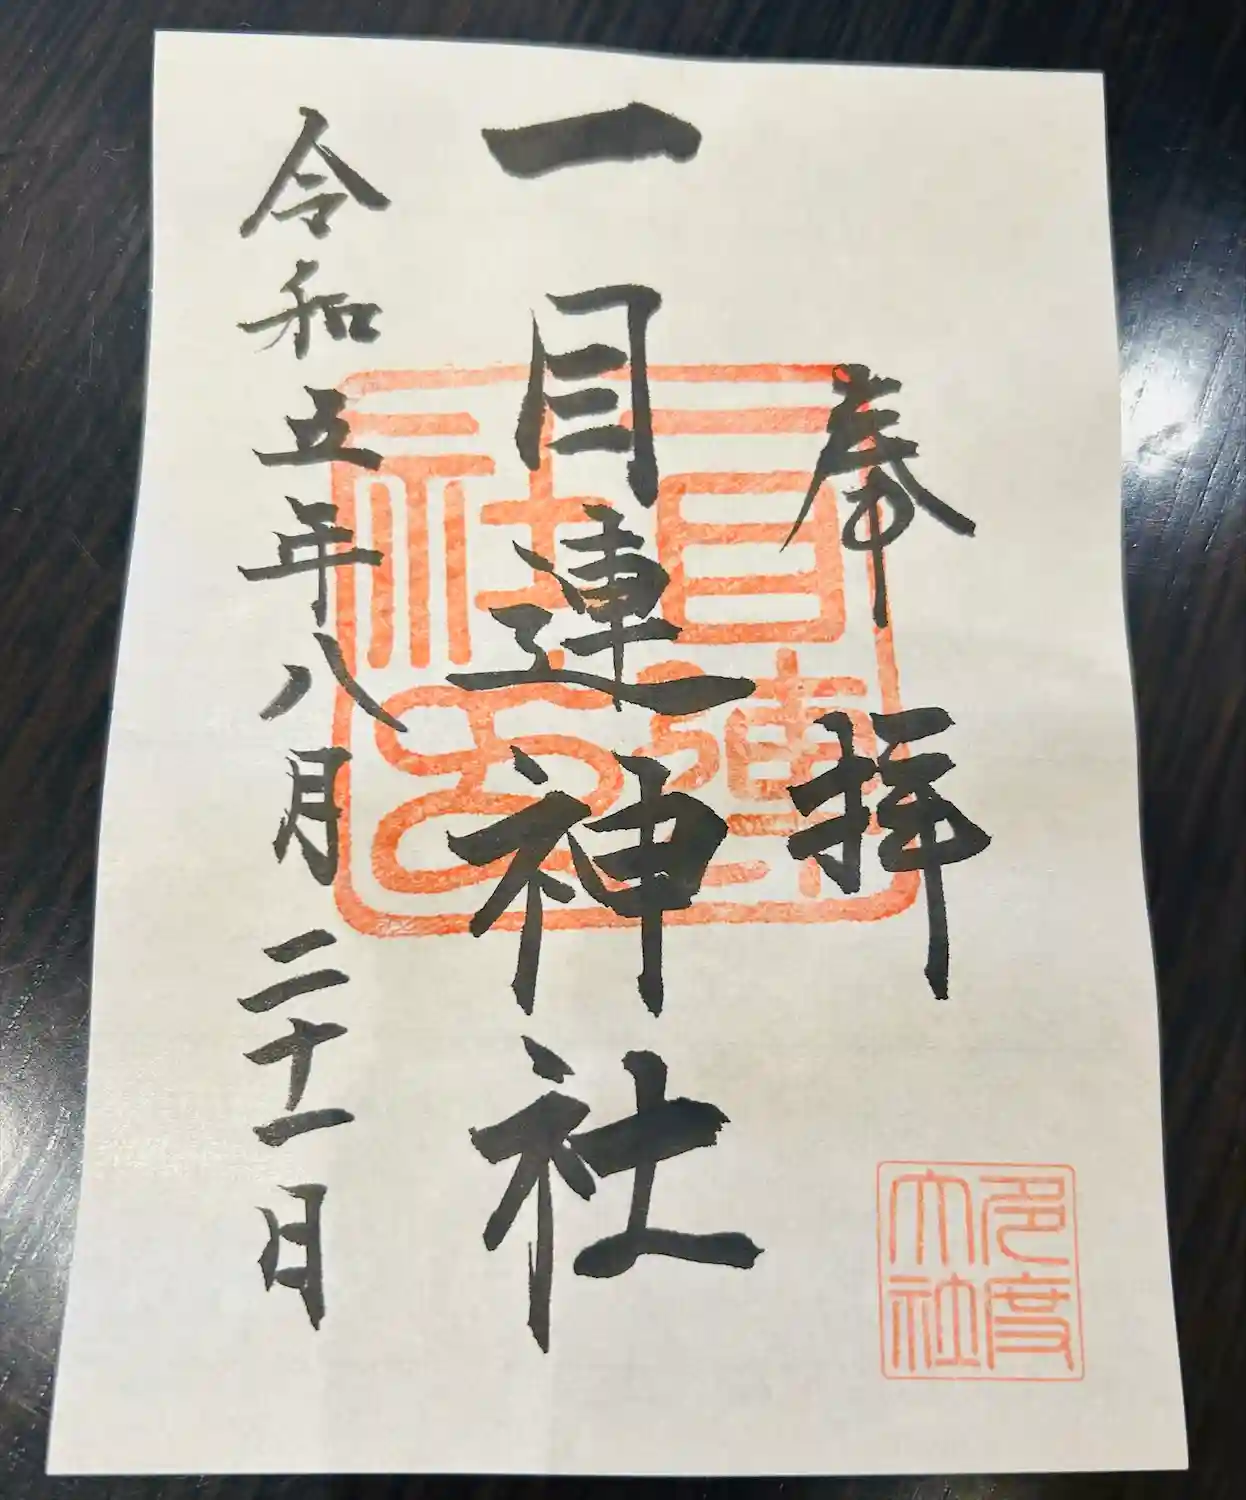 奉拝
一目連神社
令和五年八月二十一日
一目連社之印
多度大社